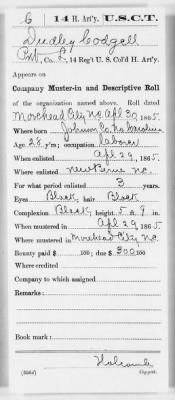 G | 14 H. Art'y. | U.S.C.T.
Dudley Codgell
Pvt, Co. L, 14 Reg't U. S. Col'd H. Art'y.
Appears on
Company Muster-in and Descriptive Roll
of the organization named above. Roll dated
Morehead City NC Apl 30, 1865.
Where born Johnson Co. No. Carolina
Age 28 y'rs; occupation laborer
When enlisted Apl 29, 1865.
Where enlisted New Berne N.C.
For what period enlisted 3 years.
Eyes Black; hair Black
Complexion Black; height 5 ft. 9 in.
When mustered in Apl 29, 1865.
Where mustered in Morehead City N.C.
Bounty paid $ 100; due $ 300 100
Where credited
Company to which assigned
Remarks:
Book mark:
Holcomb
Copyist.